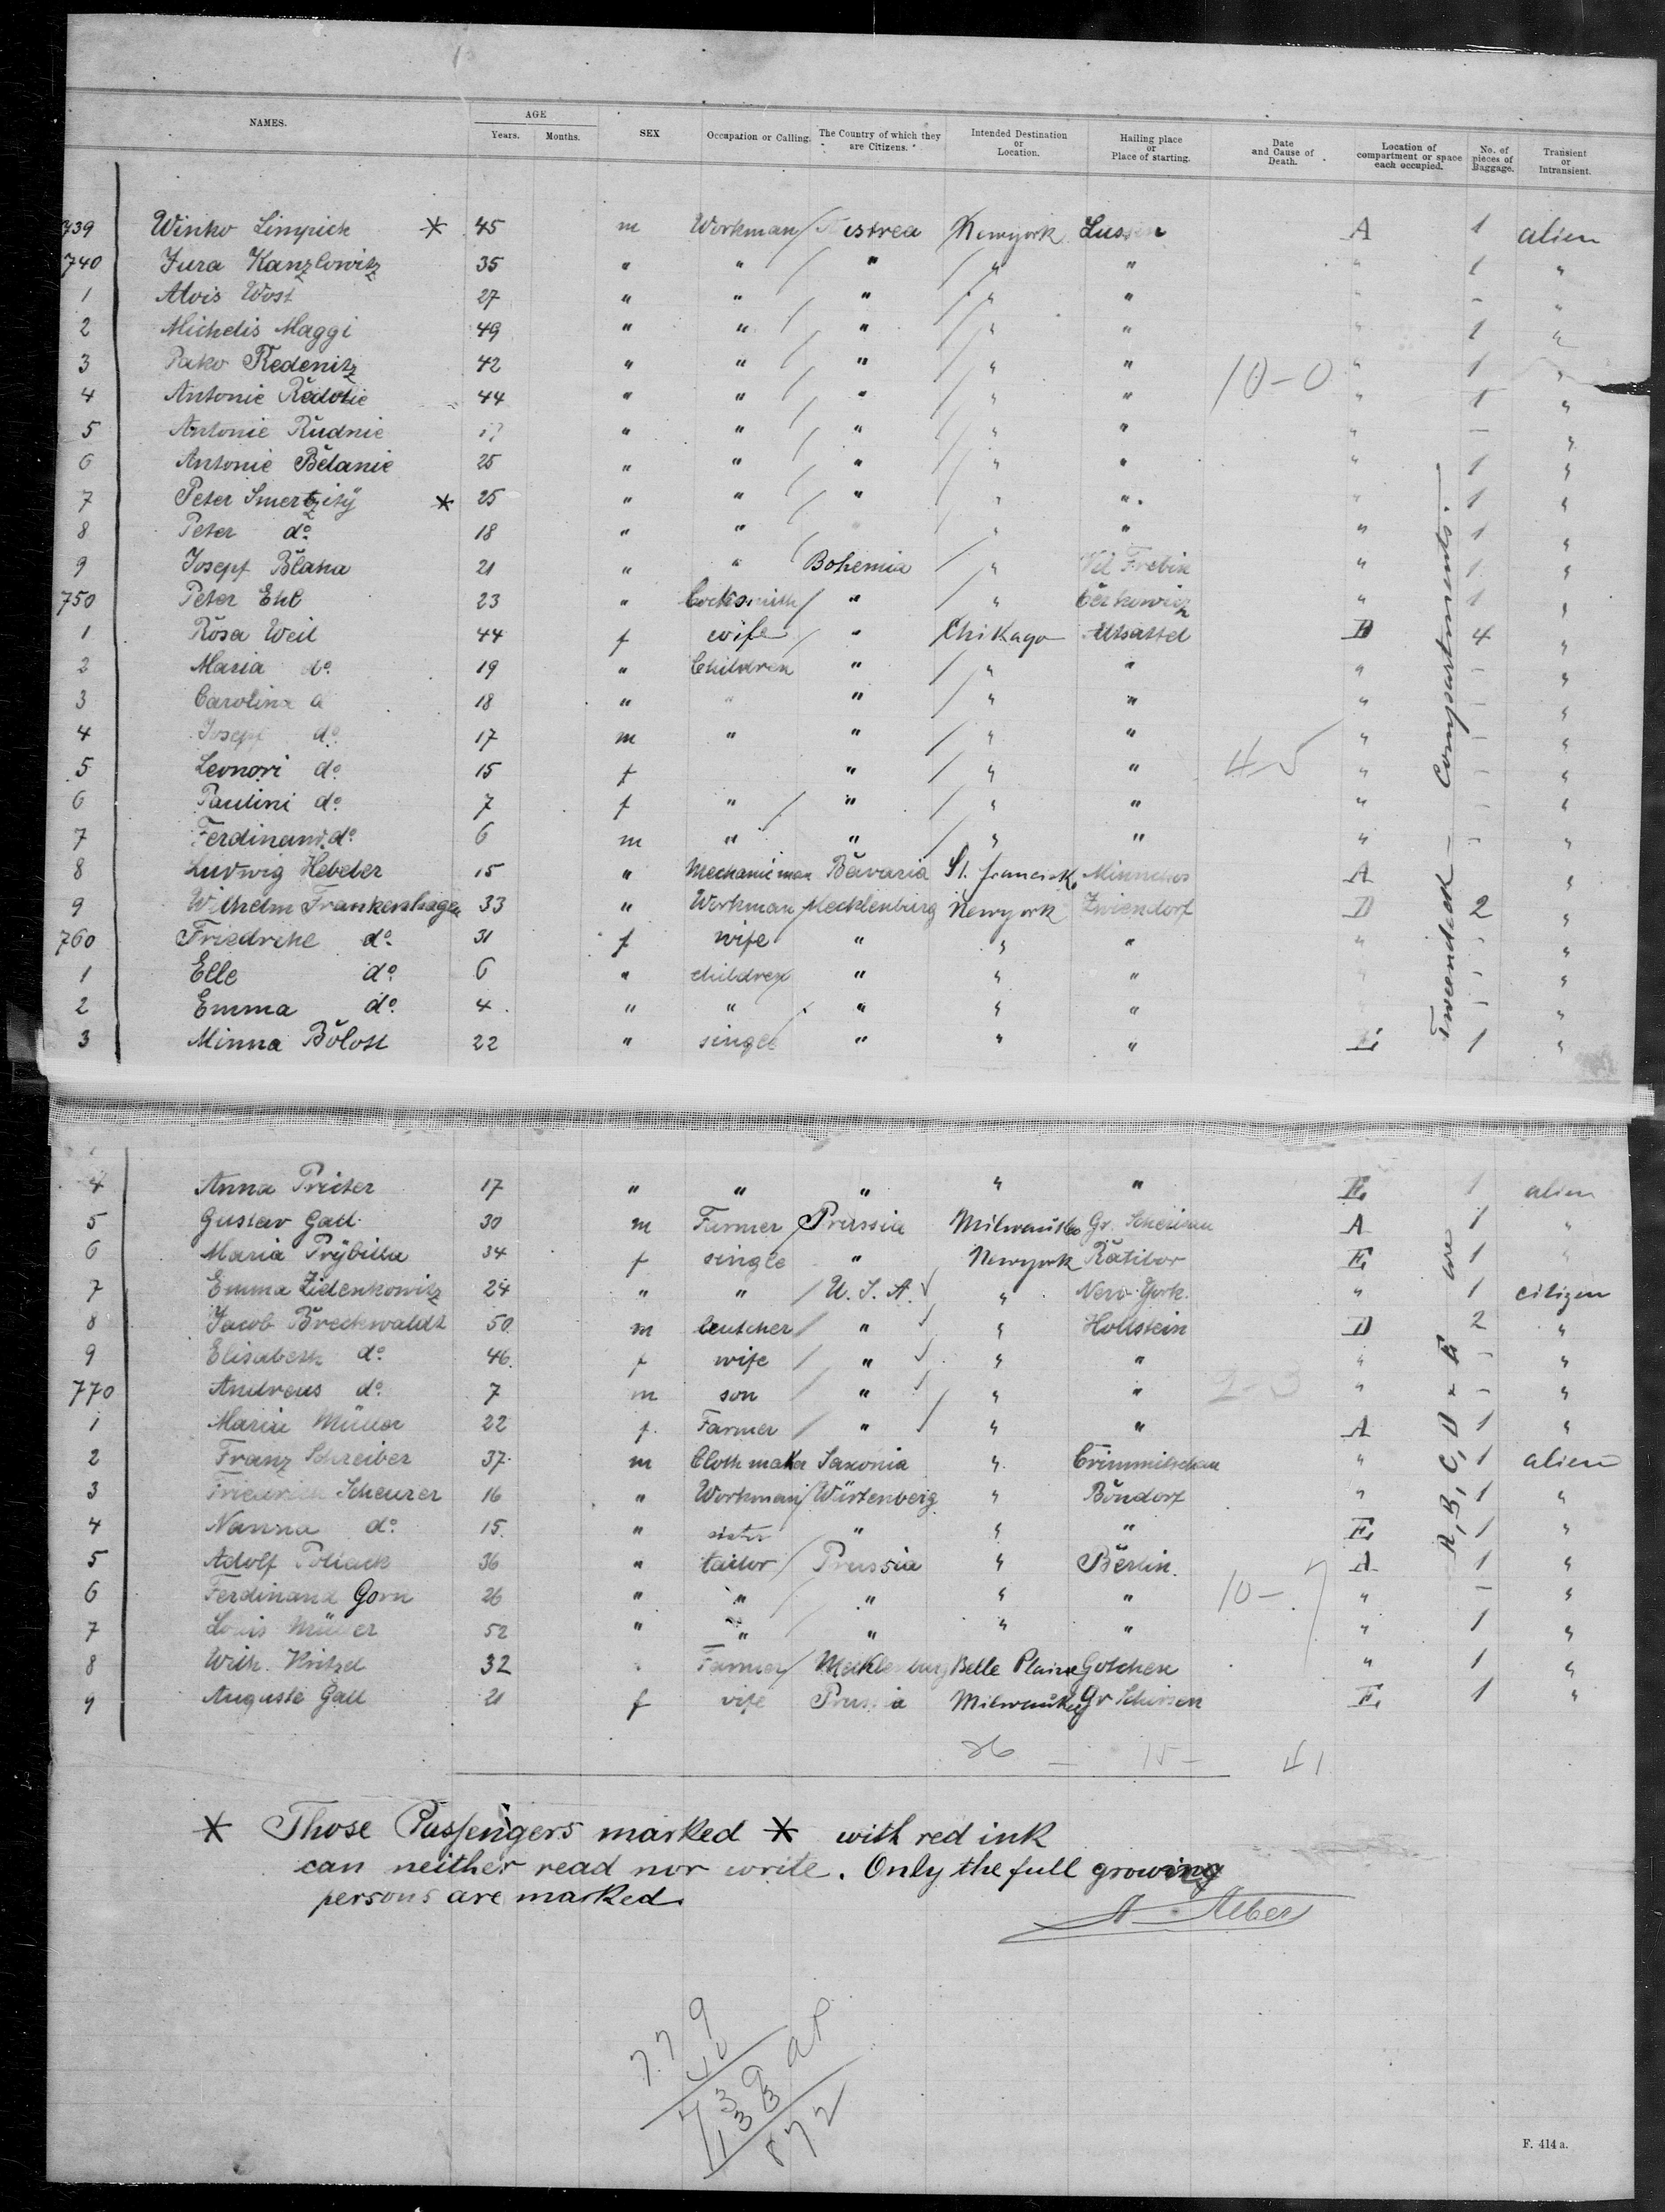 NAMES. AGE Years. Months. SEX Occupation or Calling. The Country of which they are Citizens. Intended Destination or Location. Hailing place or Place of starting. Date and Cause of Death. Location of compartment or space each occupied. No. of pieces of Baggage. Transient or Intransient.
739 Winko Limpich * 45 m Workman Newyork A 1 alien
740 Jura Kanzlowitz 35 " " " " " " 1 "
1 Alois Wost 27 " " " " " " – "
2 Michelis Maggi 49 " " " " " " 1 "
3 Pako Redenitz 42 " " " " " 10-0 " 1 "
4 Antonie 44 " " " " " " 1 "
5 Antonie Rudnic " " " " " " – "
6 Antonie Belanic 25 " " " " " " 1 "
7 Peter * 25 " " " " " " 1 "
8 Peter do 18 " " " " " " 1 "
9 Josepf Blaha 21 " " Bohemia " " 1 "
750 Peter Ehl 23 " Locksmith " " " 1 "
1 Rosa Weil 44 f wife " Chikago D 4 "
2 Maria do 19 " Children " " " " – "
3 Carolina d 18 " " " " " " – "
4 Josepf do 17 m " " " " " – "
5 Leonori do 15 f " " " " – "
6 Paulini do 7 f " " " " " – "
7 Ferdinand do 6 m " " " " " – "
8 Ludwig Hebeler 15 " Bavaria A "
9 Wilhelm Frankenhagen 33 " Workman Mecklenburg Newyork Zwiendorf D 2 "
760 Friedreke do 31 f wife " " " " – "
1 Elle do 6 " children " " " – "
2 Emma do 4 " " " " " – "
3 Minna 22 " single " " " E 1 "
4 Anna Priester 17 " " " " " E 1 alien
5 Gustav Gall 30 m Farmer Prussia Milwaukee Gr. A 1 "
6 Maria Prybilla 34 f single " Newyork Ratibor E 1 "
7 Emma 24 " " U. S. A. " New-York. " 1 citizen
8 Jacob Breckwaldt 50 m " " Hollstein D 2 "
9 Elisabeth do 46 f wife " " " " – "
770 Andreas do 7 m son " " " 2-3 " – "
1 Marie Müller 22 f. Farmer " " " A 1 "
2 Franz Schreiber 37 m Cloth maker Saxonia " Crimmitschau " 1 alien
3 Friedrich Scheurer 16 " Workman Würtenberg " Bondorf " 1 "
4 Nanna do 15 " sister " " " E 1 "
5 Adolf Pollack 36 " tailor Prussia " Berlin. A 1 "
6 Ferdinand Gorn 26 " " " " " 10- " – "
7 Louis Müller 52 " " " " " " 1 "
8 Wilh. Kritzel 32 Farmer Mecklenburg Belle Plaine Golchen " 1 "
9 Auguste Gall 21 f wife Prussia Milwaukee Gr E 1 "
A, B, C, D & E are Tweendeck - Compartments.
26 — 15 — 41
* Those Passengers marked * with red ink
can neither read nor write. Only the full growing
persons are marked.
779
872
F. 414 a.